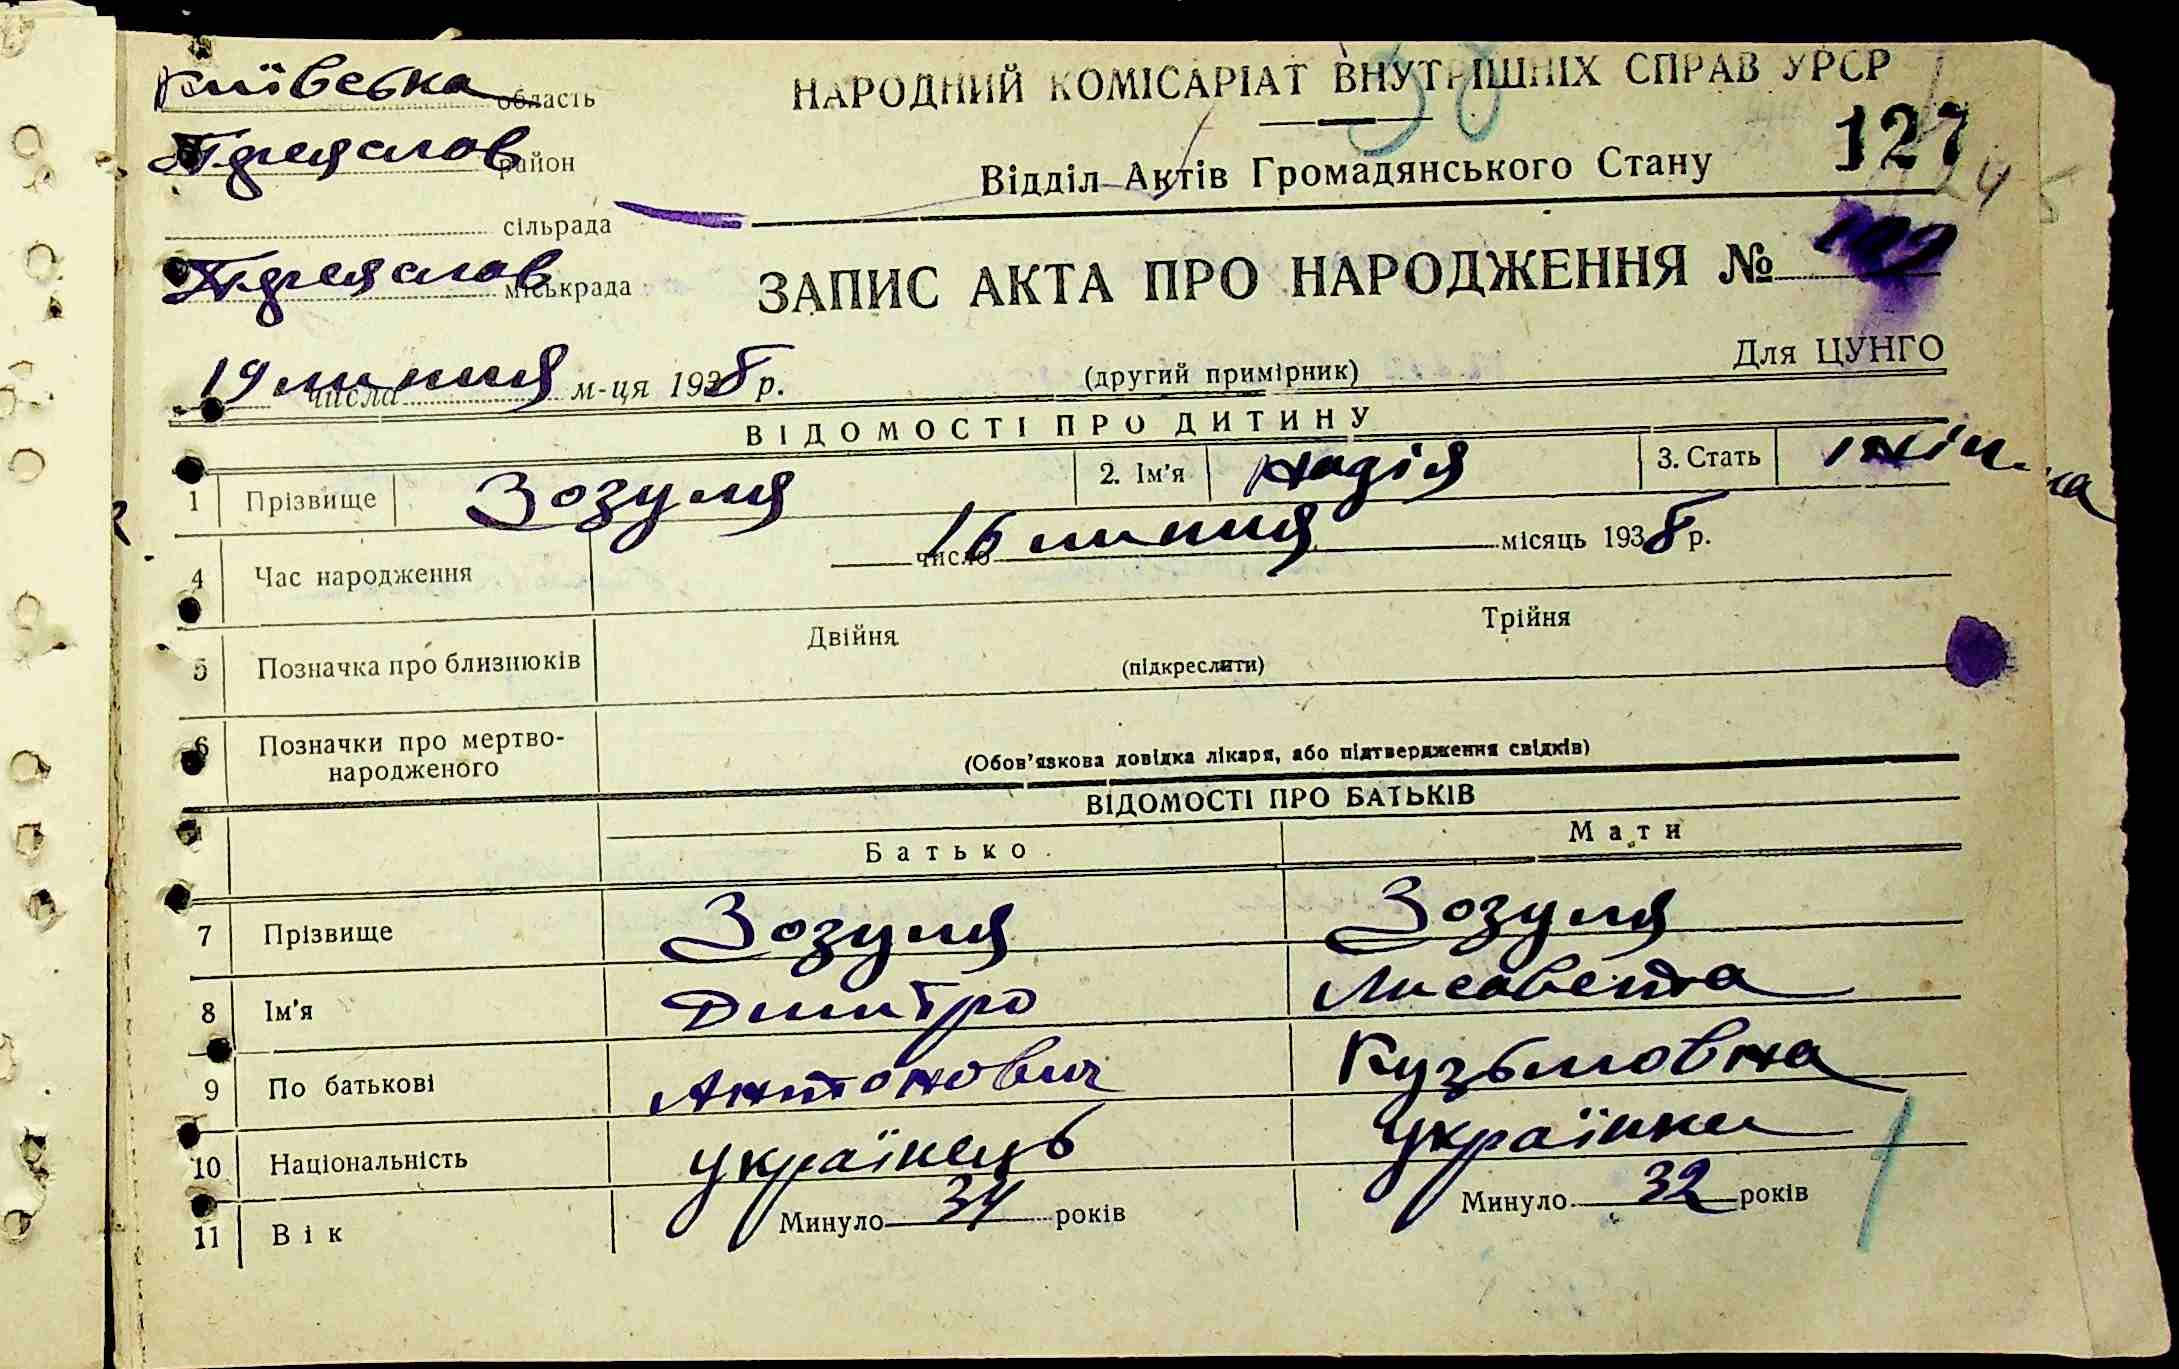 Київська область
НАРОДНИЙ КОМІСАРІАТ ВНУТРІШНІХ СПРАВ УРСР
38
Переяслов район
Відділ Актів Громадянського Стану
127
сільрада
Переяслов міськрада
ЗАПИС АКТА ПРО НАРОДЖЕННЯ №
19 числа липня м-ця 1938 р.
(другий примірник)
Для ЦУНГО
ВІДОМОСТІ ПРО ДИТИНУ
1 Прізвище Зозуля 2. Ім'я Надія 3. Стать жіноча
4 Час народження 16 число липня місяць 1938 р.
5 Позначка про близнюків Двійня Трійня
(підкреслити)
6 Позначки про мертво-
народженого
(Обов'язкова довідка лікаря, або підтвердження свідків)
ВІДОМОСТІ ПРО БАТЬКІВ
Батько Мати
7 Прізвище Зозуля Зозуля
8 Ім'я Дмитро Лисавета
9 По батькові Антонович Кузьмовна
10 Національність українець українка
11 Вік Минуло 34 років Минуло 32 років